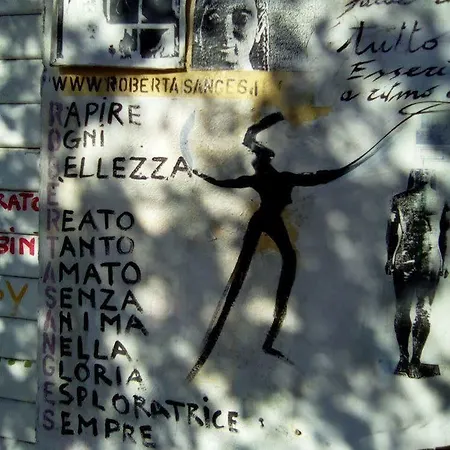 tutto
Esseri
a ritmo
WWW.ROBERTASANGES.I
RAPIRE
OGNI
BELLEZZA
E
REATO
TANTO
AMATO
SENZA
ANIMA
NELLA
GLORIA
ESPLORATRICE
SEMPRE
RATO
BIN
Y